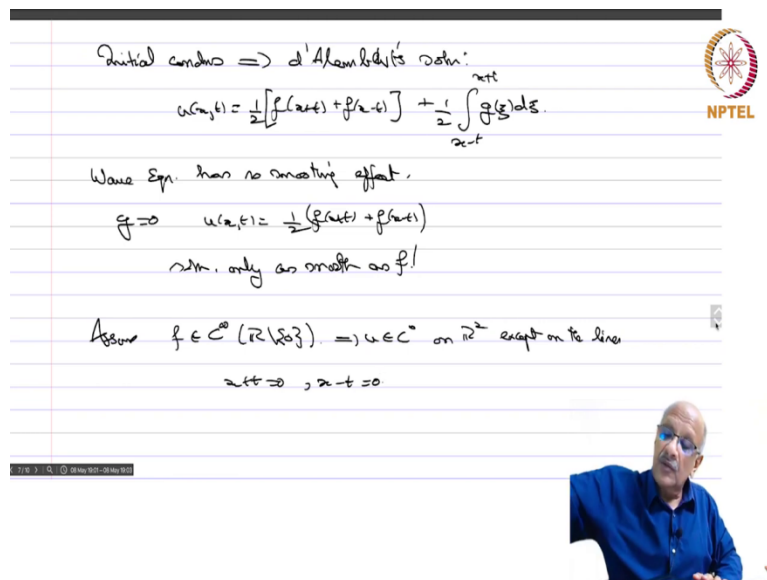 Initial condns => d'Alembert's soln:
u(x,t) = 1/2 [f(x+t) + f(x-t)] + 1/2 ∫_{x-t}^{x+t} g(ξ)dξ.
NPTEL
Wave Eqn. has no smoothing effect.
g=0 u(x,t) = 1/2 (f(x+t) + f(x-t))
soln. only as smooth as f!
Assume f ∈ C^∞ (ℝ\{0}). => u ∈ C^∞ on ℝ² except on the lines
x+t=0, x-t=0.
7/10 08 May 19:01-08 May 19:03